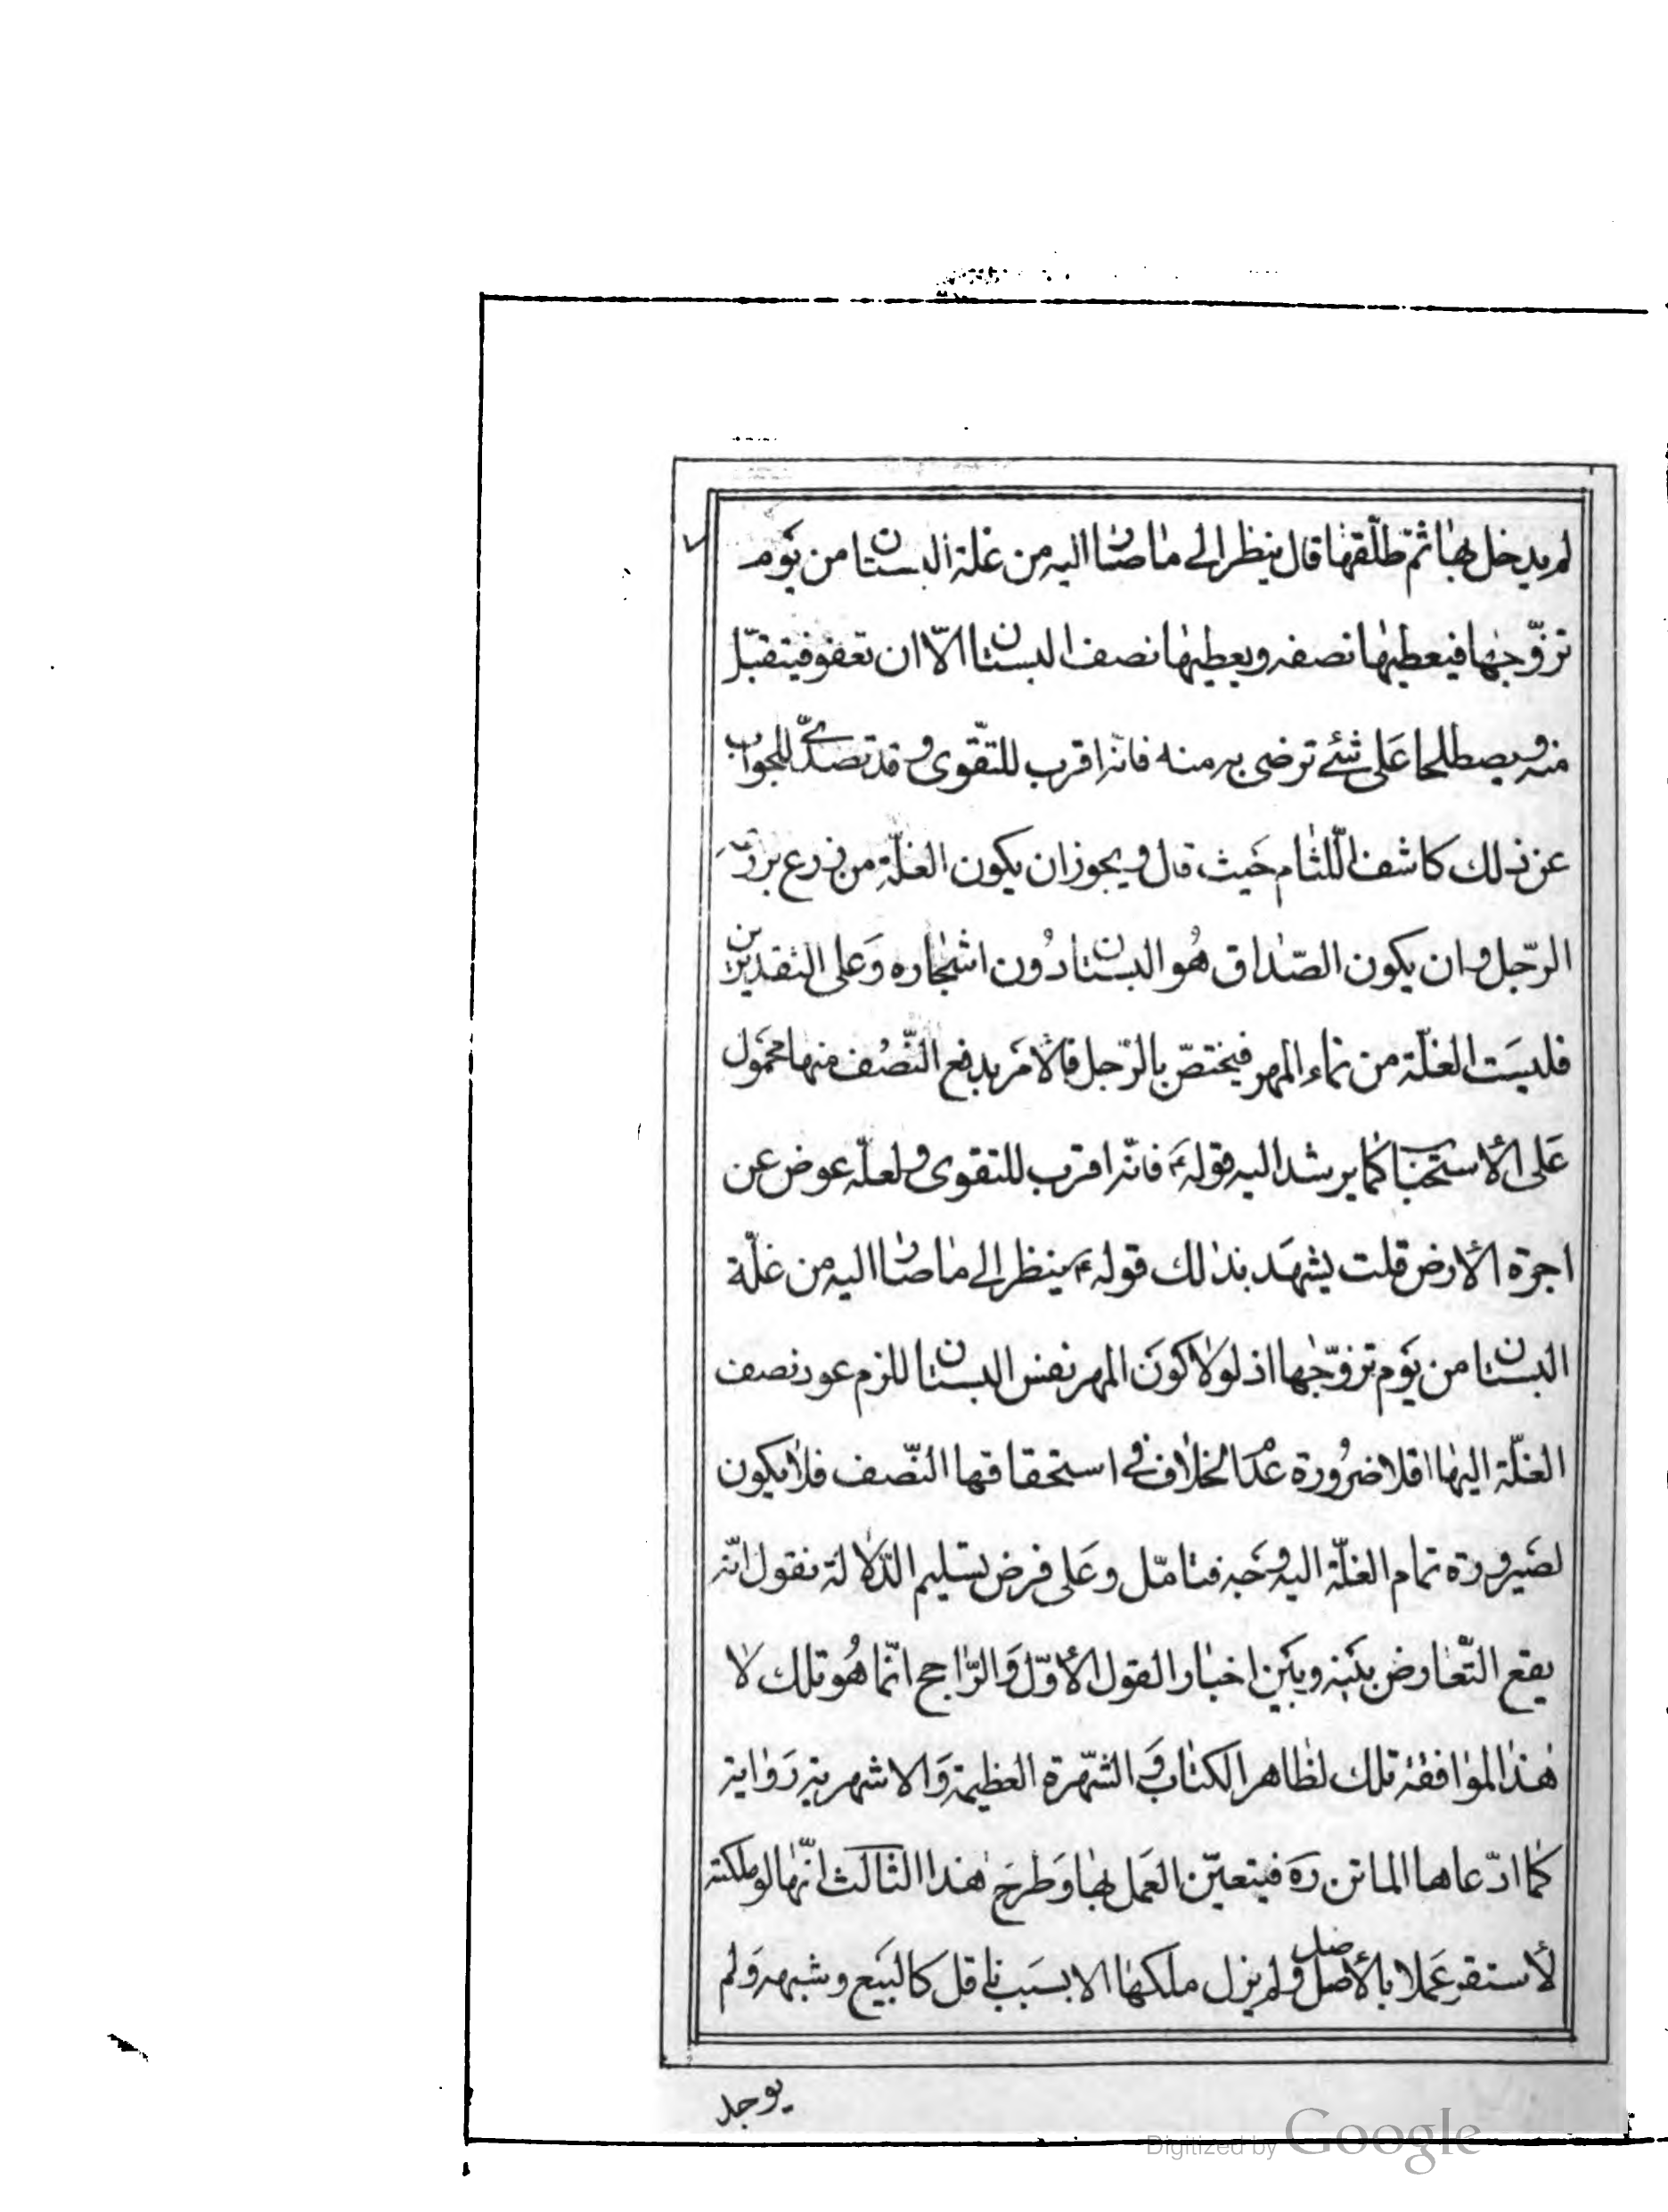 لم يدخل بها ثمّ طلّقها قال ينظر الى ما صار اليه من غلة البستان من يوم
تزوّجها فيعطيها نصفه ويعطيها نصف البستان الاّ ان تعفو فيتقبّل
منه ويصطلحا على شئ ترضى به منه فانّه اقرب للتّقوى وقد تصدّى للجواب
عن ذلك كاشف اللّثام حيث قال ويجوز ان يكون الغلّة من زرع بزرّ
الرّجل وان يكون الصّداق هو البستان دون اشجاره وعلى التقديرين
فليست الغلّة من نماء المهر فيختصّ بالرّجل فالأمر بدفع النّصف منها محمول
على الأستحباب كما يرشد اليه قوله ع فانّه اقرب للتقوى ولعلّه عوض عن
اجرة الأرض قلت يشهد بذلك قوله ع ينظر الى ما صار اليه من غلّة
البستان من يوم تزوّجها اذ لولا كون المهر نفس البستان للزم عود نصف
الغلّة اليها اقلا ضرورة عدم الخلاف في استحقاقها النّصف فلا يكون
لصيرورة تمام الغلّة اليه وجه فتامّل وعلى فرض تسليم الدّلالة نقول انّه
يقع التّعارض بينه وبين اخبار القول الأوّل والرّاجح انّما هو تلك لا
هذا لموافقة تلك لظاهر الكتاب والشّهرة العظيمة والاشهرية رواية
كما ادّعاها الماتن ره فيتعيّن العمل بها وطرح هذا الثالث انّها لو ملكته
لأستقر عملا بالأصل ولم يزل ملكها الا بسبب ناقل كالبيع وشبهه ولم
يوجد
Digitized by Google